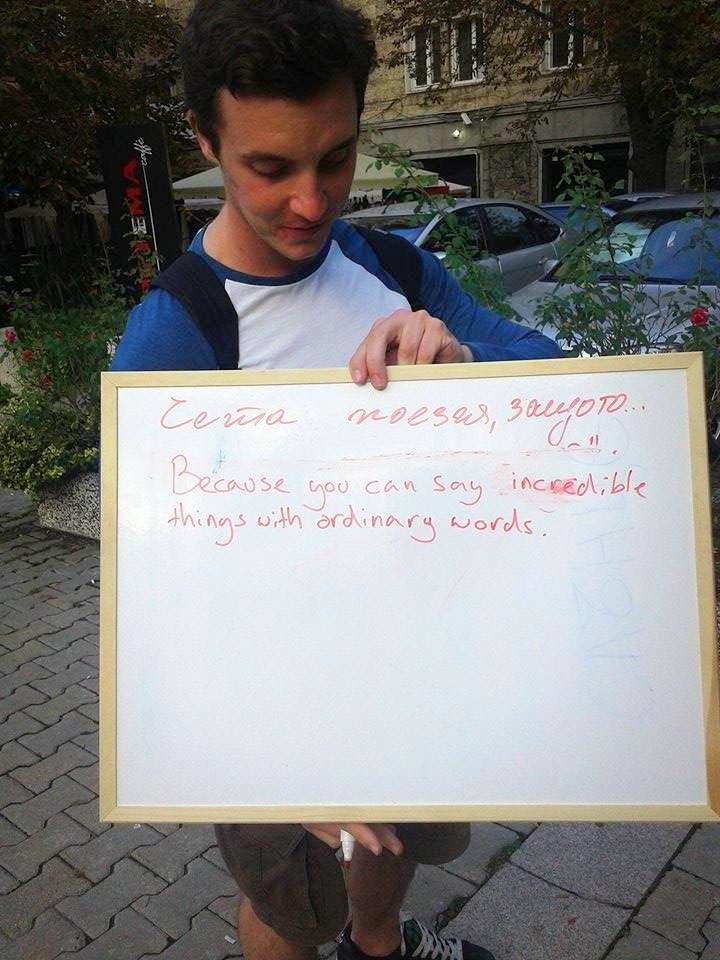 Чета поезия, защото...
Because you can say incredible
things with ordinary words.